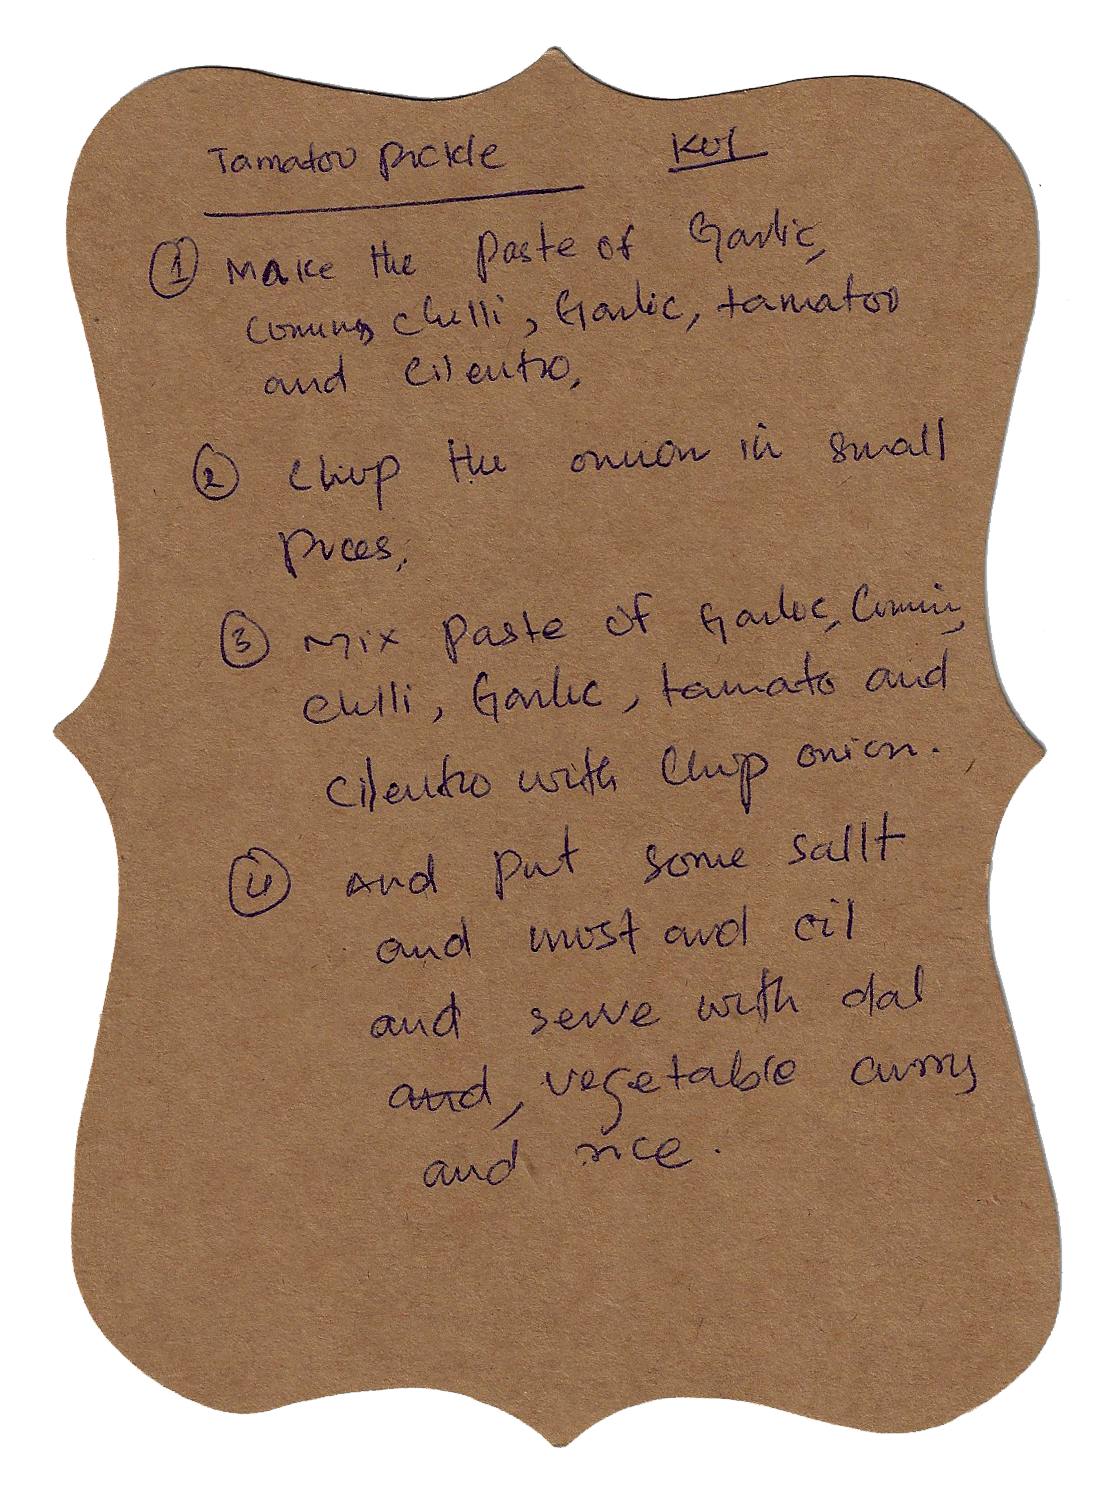 Tamatoo pickle
① Make the paste of Garlic,
chilli, Garlic, tamatoo
and cilentro,
② Chop the onion in small
pices,
③ Mix paste of Garlic, Cumin,
chilli, Garlic, tamato and
cilentro with Chop onion.
④ And put some sallt
and and oil
and serve with dal
and, vegetable curry
and rice.